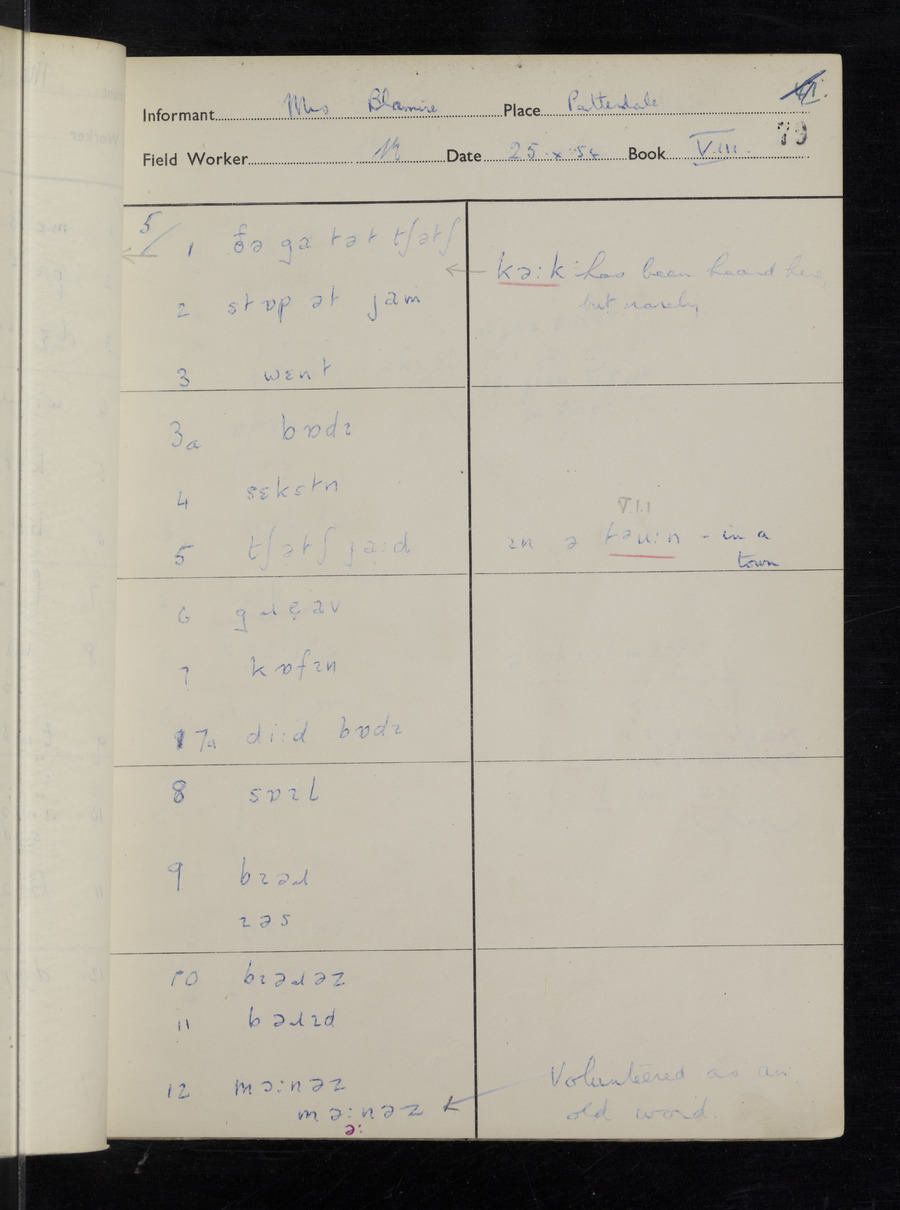 Informant Mrs Blamire Place Patterdale VI.
Field Worker N Date 25 . x . 54 Book VIII. 79
5
1 ðə ga tət tʃətʃ
kə:k has been heard here
but rarely
2 stɒp ət jam
3 wɛnt
3a bɒdɪ
4 sɛkstn
V.I.I
5 tʃətʃ ja:d
ɪn ə təu:n - in a
town
6
7 kɒfɪn
7a di:d bɒdɪ
8 sɒɪl
9 bɪəɹ
ɪəs
10 bɪəɹəz
11 bəɹɪd
12 mɔ:nəz
mə:nəz
ə:
Volunteered as an
old word.